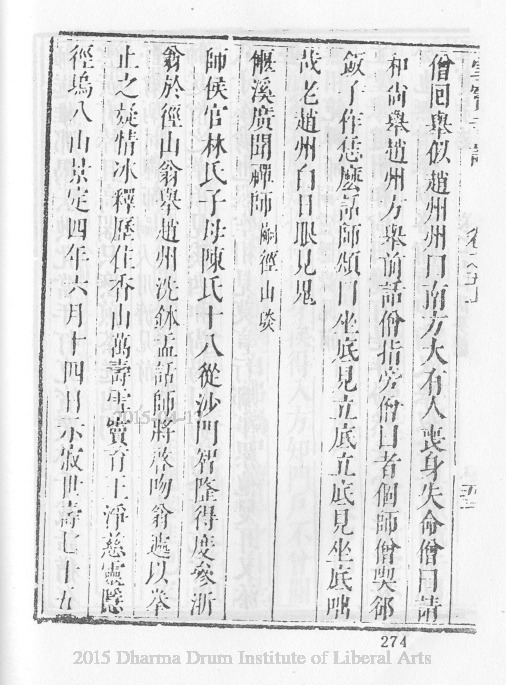 僧回舉似趙州州曰南方大有人喪身失命僧曰請
和尚舉趙州方舉前話僧指旁僧曰者個師僧喫卻
飯了作恁麼話師頌曰坐底見立底立底見坐底咄
哉老趙州白日眼見鬼
偃溪廣聞禪師 嗣徑山琰
師侯官林氏子母陳氏十八從沙門智隆得度參浙
翁於徑山翁舉趙州洗鉢盂話師將啓吻翁遽以拳
止之疑情冰釋歷住香山萬壽雪竇育王淨慈靈隱
徑塢八山景定四年六月十四日示寂世壽七十五
274
2015 Dharma Drum Institute of Liberal Arts